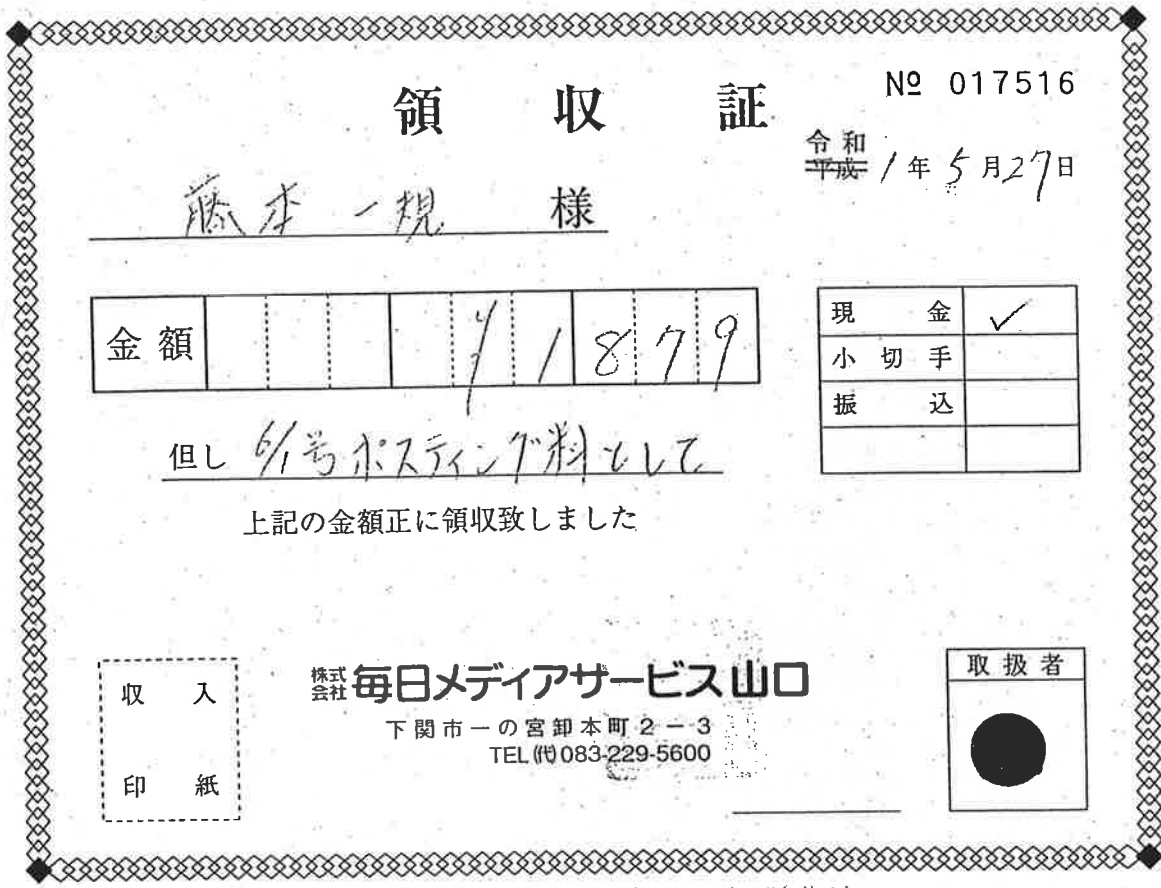 領収証
№ 017516
令和
平成 1年5月27日
藤本一規 様
金額 ¥1879
現金 ✓
小切手
振込
但し 6/1号ポスティング料として
上記の金額正に領収致しました
収入
印紙
株式会社 毎日メディアサービス山口
下関市一の宮卸本町2-3
TEL(代)083-229-5600
取扱者